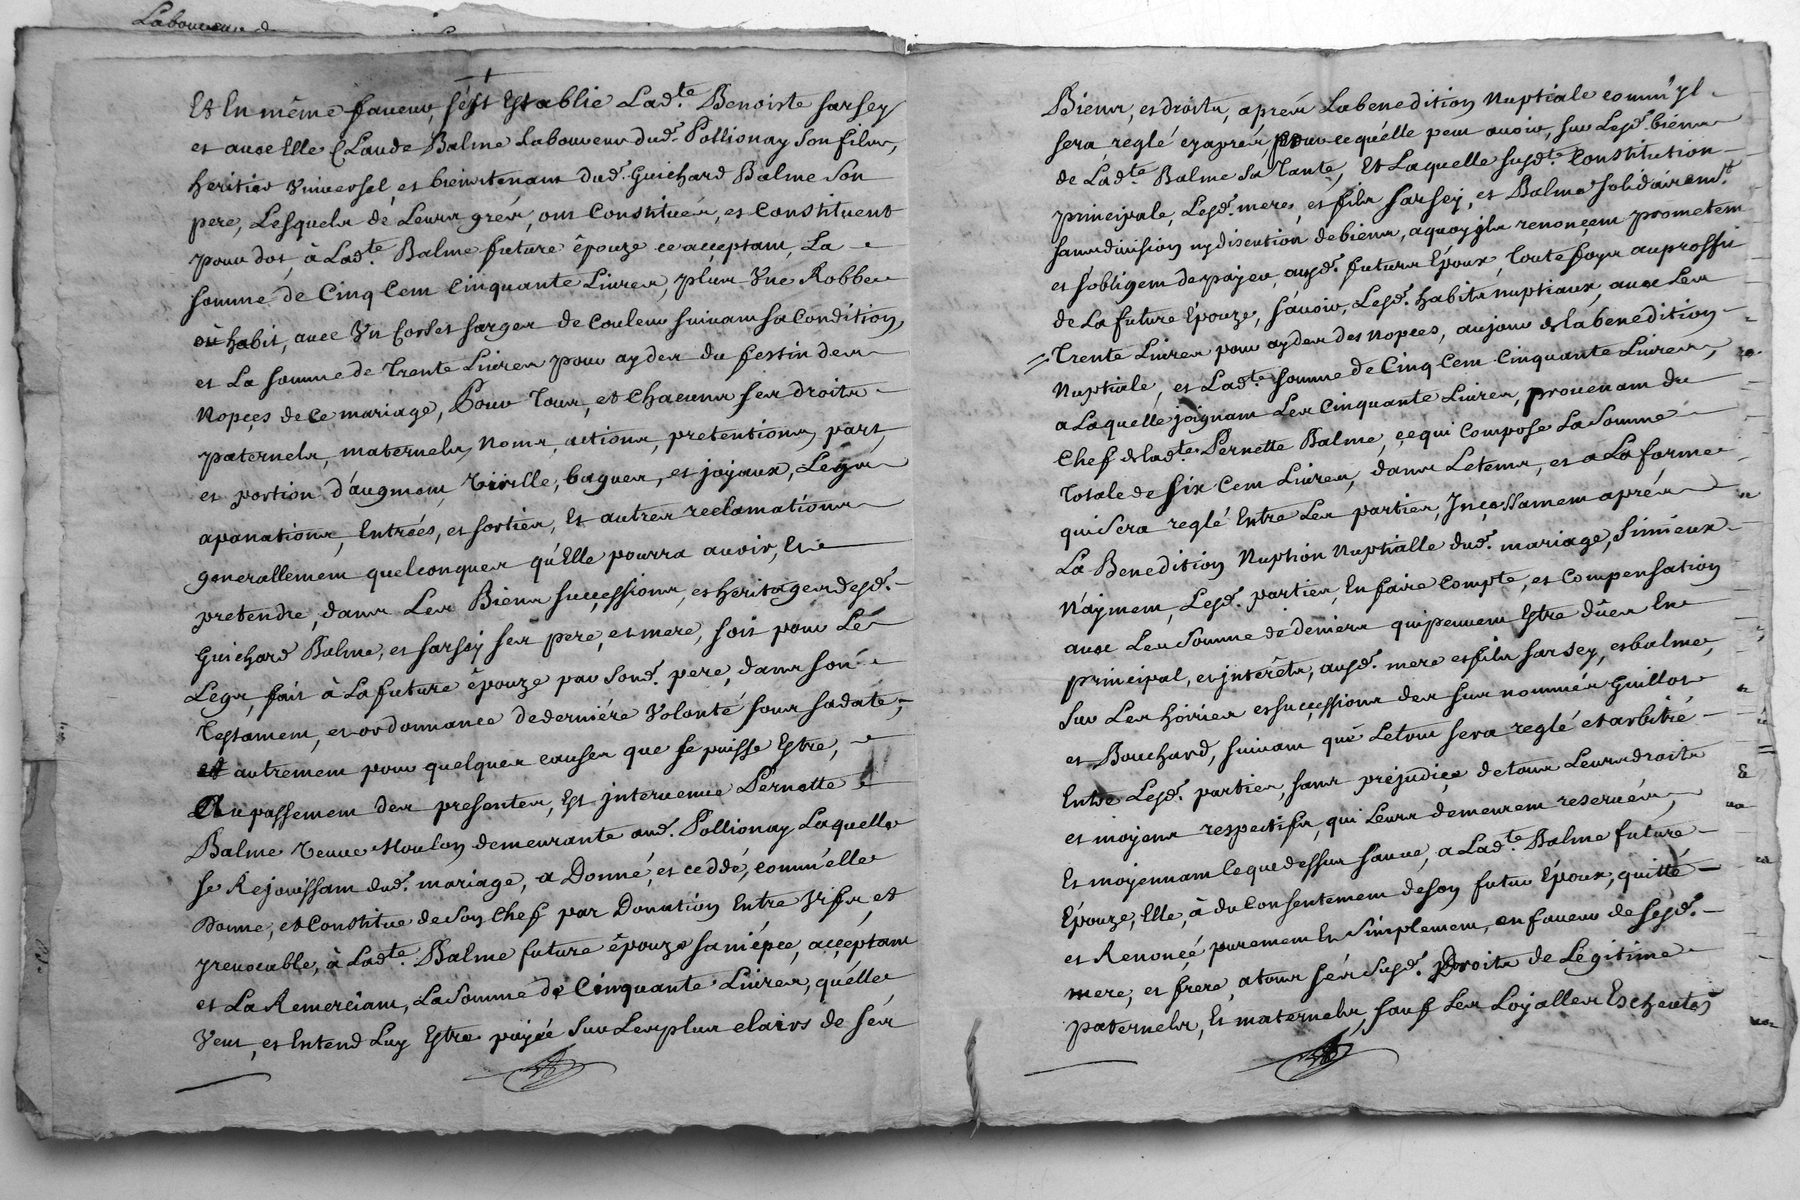 Laboureur d
Et En même faveur, s'est Establie Lad.te Benoiste sarsey
et avec Elle Claude Balme Laboureur dud.t Pollionay son filz,
heritier Vniversel, et bientenant dud.t Guichard Balme son
pere, Lesquels de Leurs gréz, ont Constitués, et Constituent
pour dot, à Lad.te Balme future êpouze ce acceptant, La
somme de Cinq Cent Cinquante Livres, plus Vne Robbe
où habit, avec Vn Corset sarges de Couleur suivant sa Condition
et La somme de Trente Livres pour ayder du festin des
Nopçes de Ce mariage, Pour Tous, et Chacuns ses droits
paternels, maternels, Noms, actions, pretentions, part,
et portion d'augment, Virille, bagues, et joyaux, Legs
aponations, Entrées, et sorties, Et autres reclamations
generallement quelconques qu'Elle pourra avoir, Et
pretendre, dans Les Biens successions, et heritages desd.
Guichard Balme, et sarsey ses pere, et mere, soit pour Le
Legs, fait à La future êpouze par sond. pere, dans son
Testament, et ordonnance de derniére Volonté sous sa date,
et autrement pour quelques causes que se puisse Estre,
Au passement des presentes, Est jntervenue Pernette
Balme Veuve Moulon demeurante aud. Pollionay Laquelle
se Rejouissant dud. mariage, a Donné, et ceddé, comm'elle
Donne, et Constitue de son Chef par Donation Entre Vifs, et
yrevocable, à Lad.te Balme future êpouze sa niépce, acçeptant
et La Remerciant, La Somme de Cinquante Livres, qu'elle
Veut, et Entend Luy Estre payée sur Les plus clairs de ses
Biens, et droits, aprés La benedition Nuptiale comm'yl
sera reglé cyaprés, pour ce qu'elle peut avoir, sur Lesd. biens
de Lad.te Balme sa Tante, Et Laquelle susd.te Constitution
principale, Lesd. meres, et filz sarsey, et Balme solidairem.t
sans division ny discution de biens, a quoy jls renonçent prometent
et s'obligent de payer, ausd. futurs Epoux, Toute foys au proffit
de La future Epouze, sçavoir, Lesd. habits nuptiaux, avec Les
Trente Livres pour ayder des Nopces, au jour de la benedition
Nuptiale, et Lad.te somme de Cinq Cent Cinquante Livres,
a Laquelle joignant Les Cinquante Livres, provenant du
Chef de lad.te Pernette Balme, ce qui Compose La Somme
Totale de Six Cent Livres, dans Le tems, et a La forme
qui Sera reglé Entre Les parties, Jnçessament aprés
La Benedition Nuption Nuptialle dud. mariage, Si mieux
N'ayment, Lesd. parties, En faire Compte, et Compensation
avec Les Somme de deniers qui peuvent Estre dües En
principal, et jnterêts, ausd. mere et filz sarsey, et balme,
Sur Les hoiries et successions des sus nommés Guillot
et Bouchard, suivant que Le tout sera reglé et arbitré
Entre Lesd. parties, sans prejudiçe de tous Leurs droits
et moyens respectifs, qui Leurs demeurent reservés,
Et moyennant Ce que dessus sauve, a Lad.te Balme future
Epouze, Elle, à du Consentement de son futur Epoux, quitté
et Renonçé purement et Simplement, en faveur de sesd.
mere, et frere, a tous sés susd. Droits de Legitime
paternels, Et maternels, sauf Les Loyalles Escheutes